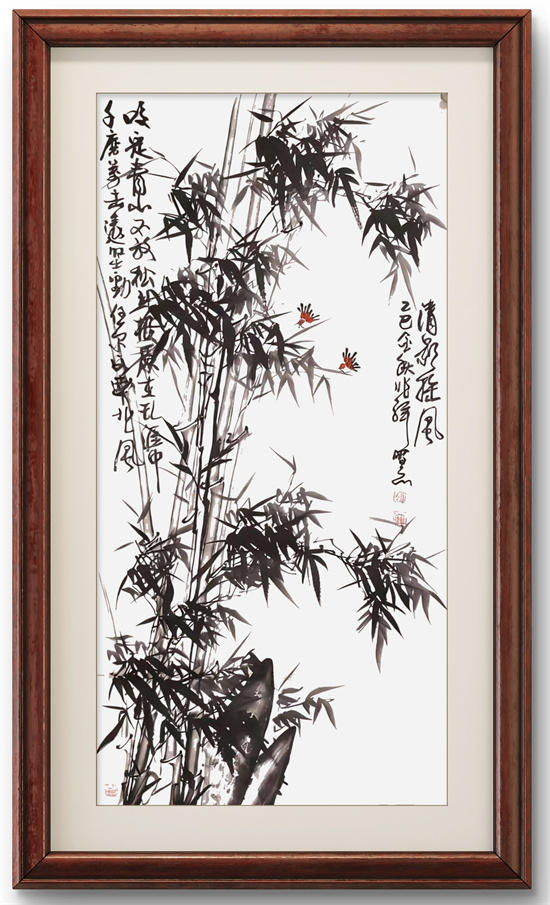 清影摇风
乙巳金秋
咬定青山不放松立根原在乱崖中
千磨万击还坚劲任尔东西南北风